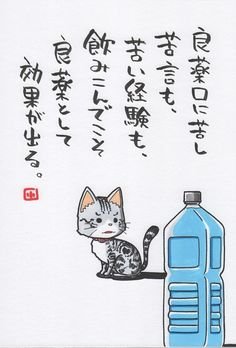 良薬口に苦し
苦言も、
苦い経験も、
飲みこんでこそ
良薬として
効果が出る。